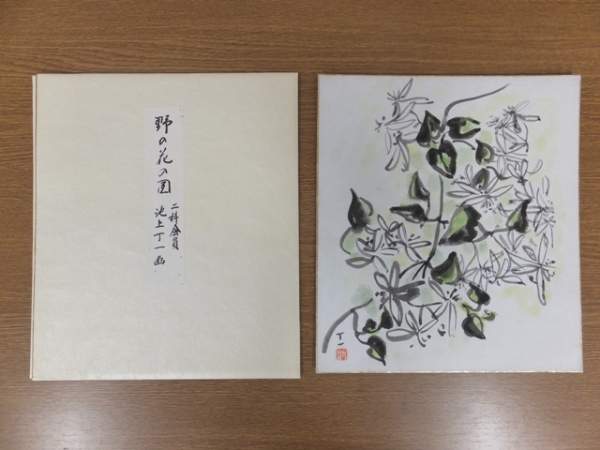 野の花の図
二科会員
池上丁一画
丁一